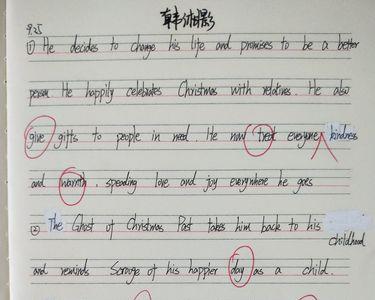 9.25
① He decides to change his life and promises to be a better
person. He happily celebrates Christmas with relatives. He also
give gifts to people in need. He now treat everyone kindness
and warmth, spending love and joy everywhere he goes
② The Ghost of Christmas Past takes him back to his
childhood
and reminds Scrouge of his happier day as a child.